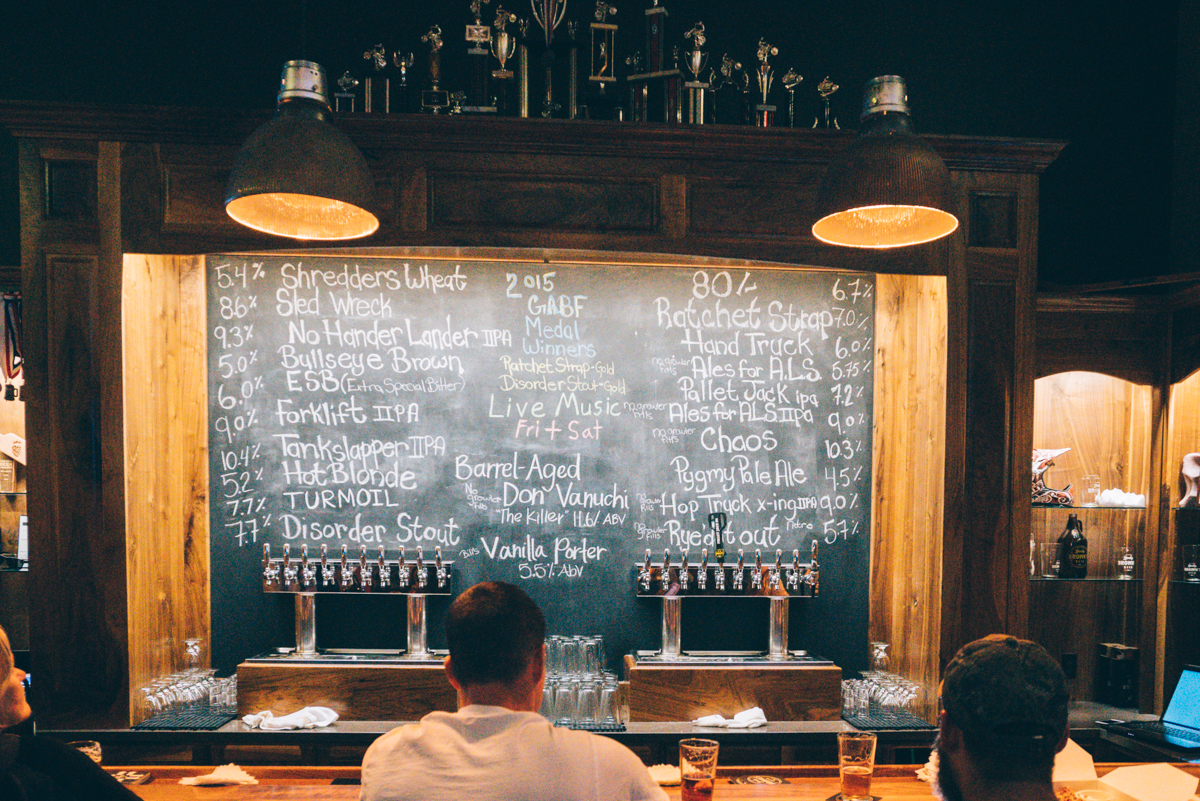 5.4% Shredders Wheat
8.6% Sled Wreck
9.3% No Hander Lander IIPA
5.0% Bullseye Brown
6.0% ESB (Extra Special Bitter)
9.0% Forklift IIPA
10.4% Tankslapper IIPA
5.2% Hot Blonde
7.7% TURMOIL
7.7% Disorder Stout
2015
GABF
Medal
Winners
Ratchet Strap-Gold
Disorder Stout-Gold
Live Music
Fri + Sat
Barrel-Aged
No growler fills Don Vanuchi
"The Killer" 11.6% ABV
Vanilla Porter
5.5% ABV
80/- 6.7%
Ratchet Strap 7.0%
Hand Truck 6.0%
no growler fills Ales for A.L.S. 5.75%
Pallet Jack ipa 7.2%
no growler fills Ales for ALS IIPA 9.0%
no growler fills Chaos 10.3%
Pygmy Pale Ale 4.5%
Hop Truck x-ing IIPA 9.0%
Rye'd it out nitro 5.7%